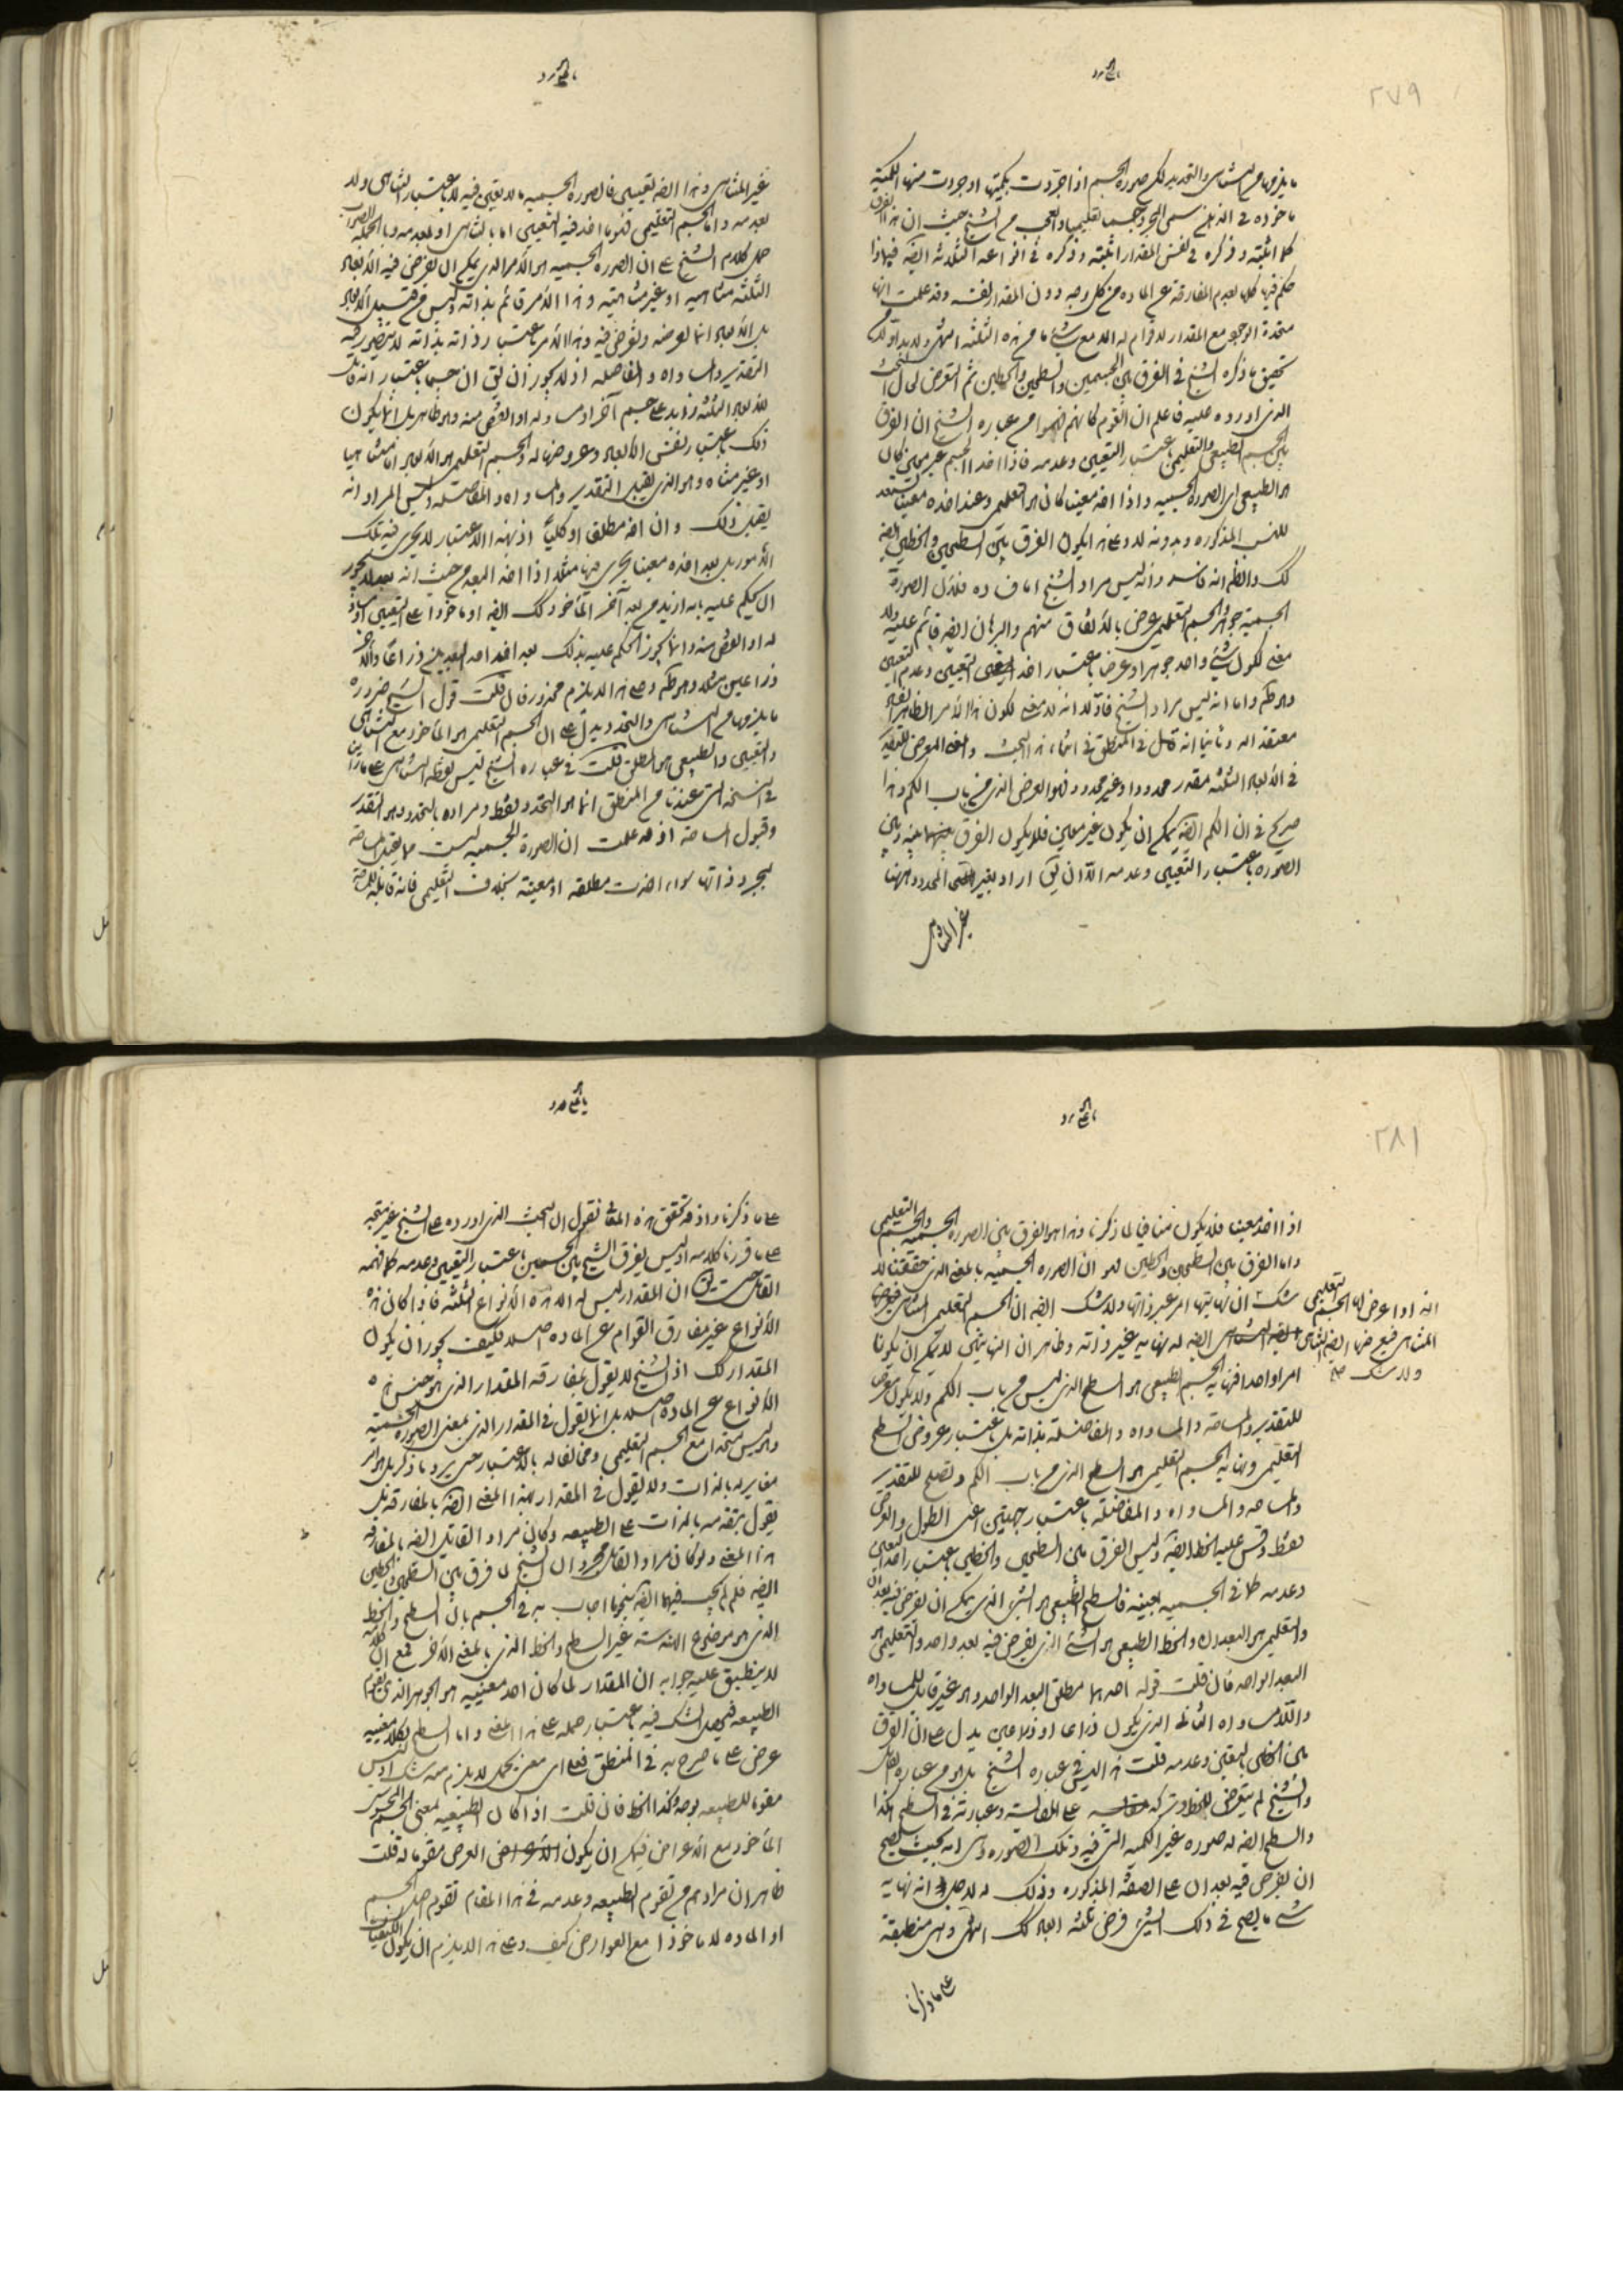 ٢٧٩
ما يلزمها من التناهي والتحديد لكن صورة الجسم اذا جردت بكميتها او جردت منها الكمية
ماخوذة في الذهن سمي المجرد جسما تعليميا والعجب من الشيخ حيث ان هذا الفرق
كما اثبته وذكره في نفس المقدار اثبته وذكره في انواعه الثلثة ايضا فبماذا
حكم فيها كلها بعدم المفارقة عن المادة من كل وجه دون المقدار نفسه وقد علمت انها
متحدة الوجود مع المقدار لا قوام له الا مع شيء ما من هذه الثلثة انتهى ولا بد اولا من
تحقيق ما ذكره الشيخ في الفرق بين الجسمين والسطحين والخطين ثم التعرض لحال البحث
الذي اورده عليه فاعلم ان القوم كانهم فهموا من عبارة الشيخ ان الفرق
بين الجسم الطبيعي والتعليمي باعتبار التعيين وعدمه فاذا اخذ الجسم غير معين كان
هو الطبيعي اي الصورة الجسمية واذا اخذ معينا كان هو التعليمي وعند اخذه معينا يستعد
للنسب المذكورة وبدونه لا وعلى هذا يكون الفرق بين السطحين والخطين ايضا
كك والظ انه فاسد وانه ليس مراد الشيخ اما فساده فلان الصورة
الجسمية جوهر والجسم التعليمي عرض بالاتفاق منهم والبرهان ايضا قائم عليه ولا
معنى لكون شيء واحد جوهرا وعرضا باعتبار اخذ التعيين وعدم التعيين
وهو ظ واما انه ليس مراد الشيخ فاولا انه لا معنى لكون هذا الامر الظاهر الفساد
معتقدا له وثانيا انه قال في المنطق في اثناء هذا البحث والمعنى المعرض للتقدير
في الابعاد الثلثة مقدر محدودا وغير محدود فهو العرض الذي من باب الكم وهذا
صريح في ان الكم ايضا يمكن ان يكون غير معين فلا يكون الفرق بينه وبين
الصورة باعتبار التعيين وعدمه الا ان يق اراد بغير المحدود ههنا
غير المتناهي
غير المتناهي وهذا ايضا تعيين فالصورة الجسمية ما لا تعين فيه لا باعتبار التناهي ولا
بعدمه واما الجسم التعليمي فهو ما اخذ فيه التعيين اما بالتناهي او بعدمه وبالجملة الصواب
حمل كلام الشيخ على ان الصورة الجسمية هو الامر الذي يمكن ان يفرض فيه الابعاد
الثلثة متناهية او غير متناهية وهذا الامر قائم بذاته وليس من قبيل الابعاد
بل الابعاد انما تعرضه وتفرض فيه وهذا الامر باعتبار ذاته بذاته لا يتصور فيه
التقدير والمساواة والمفاضلة اذ لا يجوز ان يق ان جسما باعتبار انه قابل
للابعاد الثلثة زايد على جسم آخر او مساو له او انقص منه وهو ظاهر بل انما يكون
ذلك باعتبار نفس الابعاد وعروضها له والجسم التعليمي هو الابعاد اما متناهيا
او غير متناه وهو الذي يقبل التقدير والمساواة والمفاضلة وليس المراد انه
يقبل ذلك وان اخذ مطلقا او كليا اذ بهذا الاعتبار لا يجري فيه تلك
الامور بل بعد اخذه معينا يجري فيها مثلا اذا اخذ البعد من حيث انه بعد لا يجوز
ان يحكم عليه بانه ازيد من بعد آخر الماخوذ كك ايضا او ماخوذا على التعيين او مساو
له او انقص منه وانما يجوز الحكم عليه بذلك بعد اخذ احد البعدين ذراعا والاخر
ذراعين مثلا وهو ظ وعلى هذا لا يلزم محذور فان قلت قول الشيخ ضرورة
ما يلزمها من التناهي والتحديد يدل على ان الجسم التعليمي هو الماخوذ مع التناهي
والتعيين والطبيعي هو المطلق قلت في عبارة الشيخ ليس لفظ التناهي على ما راينا
في النسخة التي عندنا من المنطق انما هو التحدد فقط ومراده بالتحدد هو التقدر
وقبول المساحة اذ قد علمت ان الصورة الجسمية ليست مما يقبل المساحة
بمجرد ذاتها سواء اخذت مطلقة او معينة بخلاف التعليمي فانه قابل للمساحة
٢٨١
اذا اخذ معينا فلا يكون منافيا لما ذكرنا وهذا هو الفرق بين الصورة الجسمية والجسم التعليمي
واما الفرق بين السطحين والخطين فهو ان الصورة الجسمية بالمعنى الذي حققنا لا
شك ان نهايتها امر غير ذاتها ولا شك ايضا ان الجسم التعليمي المتناهي
ايضا له نهاية غير ذاته وظاهر ان النهايتين لا يمكن ان يكونا
انه اذا عرض لها الجسم التعليمي
المتناهي فيعرضها ايضا التناهي
ولا شك صح
امرا واحدا فنهاية الجسم الطبيعي هو السطح الذي ليس من باب الكم ولا يكون معرضا
للتقدير والمساحة والمساواة والمفاضلة بذاته بل باعتبار عروض السطح
التعليمي ونهاية الجسم التعليمي هو السطح الذي من باب الكم ويصلح للتقدير
والمساحة والمساواة والمفاضلة باعتبار جهتين اعني الطول والعرض
فقط وقس عليه الخط ايضا وليس الفرق بين السطحين والخطين باعتبار اخذ التعين
وعدمه كما في الجسمية بعينه فالسطح الطبيعي هو الشيء الذي يمكن ان يفرض فيه بعدان
والتعليمي هو البعدان والخط الطبيعي هو الشيء الذي يفرض فيه بعد واحد والتعليمي هو
البعد الواحد فان قلت قوله احدهما مطلق البعد الواحد وهو غير قابل للمساواة
واللامساواة الذي يكون ذراعا او ذراعين يدل على ان الفرق
بين الخطين بالتعين وعدمه قلت هذا ليس في عبارة الشيخ بل هو من عبارة القائل
والشيخ لم يتعرض للخط وتركه على المقايسة وعبارته في السطح هكذا
والسطح ايضا له صورة غير الكمية التي فيه وتلك الصورة هي انه بحيث يصح
ان يفرض فيه بعدان على الصفة المذكورة وذلك له لاجل انه نهاية
شيء ما يصح في ذلك الشيء فرض ثلثة ابعاد كك انتهى وهي منطبقة
على ما ذكرنا
على ما ذكرنا واذ قد تحقق هذه المقا فنقول ان البحث الذي اورده على الشيخ غير متجه
على ما قررنا كلامه اذ ليس يفرق الشيخ بين الجسمين باعتبار التعيين وعدمه كما فهمه
القائل حيث ان المقدار ليس له الا هذه الانواع الثلثة فاذا كان هذه
الانواع غير مفارق القوام عن المادة اصلا فكيف يجوز ان يكون
المقدار كك اذ الشيخ لا يقول بمفارقة المقدار الذي هو جنس هذه
الانواع عن المادة اصلا بل انما يقول في المقدار الذي بمعنى الصورة الجسمية
وليس متحدا مع الجسم التعليمي ومخالفا له بالاعتبار حتى يرد ما ذكر بل هو امر
مغاير له بالذات ولا يقول في المقدار بهذا المعنى ايضا بالمفارقة بل
يقول بتقدمه بالذات على الطبيعة وكان مراد القائل ايضا بالمفارقة
هذا المعنى ولو كان مراد القائل مجرد ان الشيخ لما فرق بين السطحين والخطين
ايضا فلم لم يجب فيهما ايضا بنحو ما اجاب به في الجسم بان السطح والخط
الذي هو موضوع الهندسة غير السطح والخط الذي بالمعنى الاخر فمع ان كلامه
لا ينطبق عليه جوابه ان المقدار لما كان احد معنييه هو الجوهر الذي يقوم
الطبيعة فيحصل الشك فيه باعتبار حمله على هذا المعنى واما السطح فكلا معنييه
عرض على ما صرح به في المنطق فعلى اي معنى يحمل لا يلزم منه شك اذ ليس
مقوما للطبيعة بوجه وكذا الخط فان قلت اذا كان الطبيعة بمعنى الجسم المحسوس
الماخوذ مع الاعراض فيمكن ان يكون العرض مقوما له قلت
ظاهر ان مرادهم من تقوم الطبيعة وعدمه في هذا المقام تقوم اصل الجسم
او المادة لا ماخوذا مع العوارض كيف وعلى هذا لا يلزم ان يكون الكيفيات